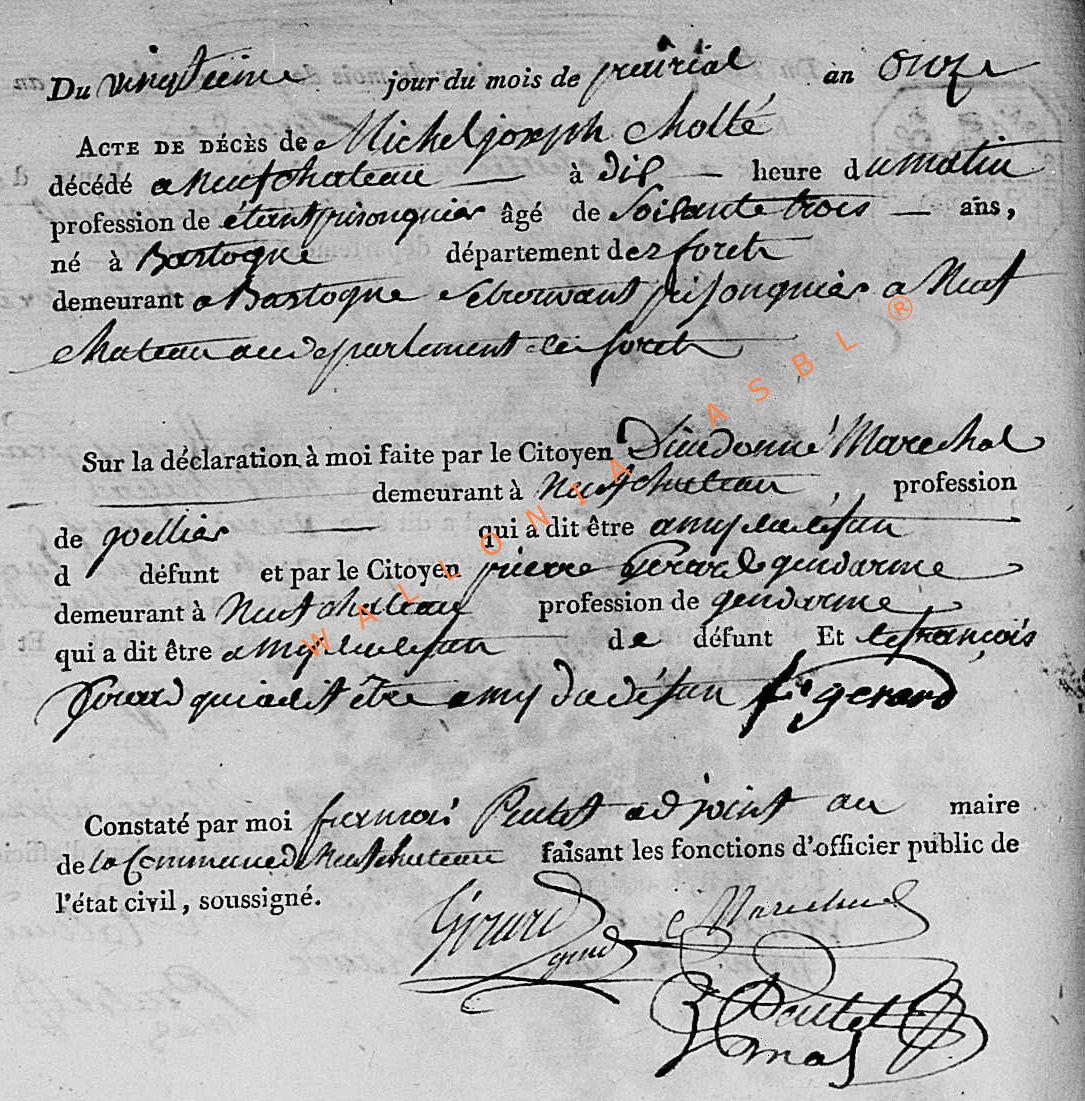 Du vingtieme jour du mois de prairial an onze
ACTE DE DÉCÈS de Michel joseph Molté
décédé a Neufchateau à dix heure du matin
profession de étant prisongnier âgé de Soisante trois ans,
né à Bastogne département des foret
demeurant a Bastogne Se trouvant prisongnier a Neuf
chateau au departement des foret
Sur la déclaration à moi faite par le Citoyen Dieudonné Marechal
demeurant à Neufchateau, profession
de goellier qui a dit être amy du defun
d défunt et par le Citoyen pierre Girard gendarme
demeurant à Neufchateau profession de gendarme
qui a dit être amy du defun de défunt Et le françois
Gerard qui a dit être amy du défun f: gerard
Constaté par moi francois Poulet adjoint au maire
de la Commune de Neufchateau faisant les fonctions d'officier public de
l'état civil, soussigné.
Girard Marechal
gend
Poulet
WALLONIA ASBL ®